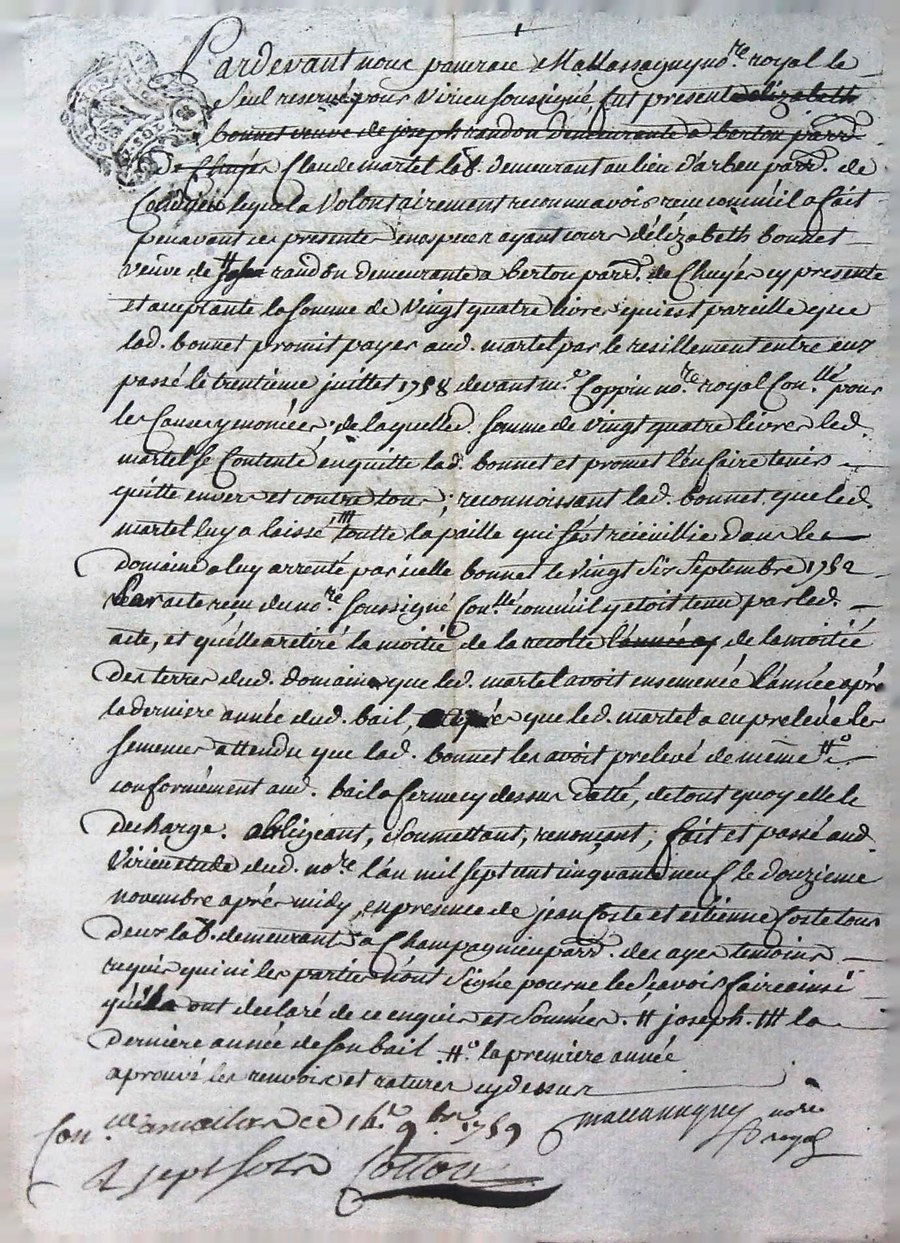 Pardevant nous pancrace Mallassagny no.re royal le
Seul reservé pour Virieu soussigné, fut présente elizabeth
bonnet veuve de joseph randon demeurante a berton parr.
de Chuyés Claude martel lab. demeurant au lieu d'arbeu parr. de
lequel a Volontairement reconnu avois receu comm'il a fait
penavant ces presentes en especes ayant cours d'élizabeth bonnet
veuve de # randon demeurante a berton parr. de Chuyés cy presente
et acceptante la somme de Vingt quatre livres qui est pareille que
lad. bonnet promit payer aud. martel par le resillement entre eux
passé le trentieme juillet 1758 devant m.e Coppin no.re royal Con.llé pour
les Causes y enoncées; de laquelle d. somme de Vingt quatre livres led.
martel se Contente en quitte lad. bonnet et promet l'en faire tenir
quitte envers et contre tous; reconnoissant lad. bonnet que led.
martel luy a laissé ### toutte la paille qui s'est recüeillie dans le
domaine a luy arrenté par icelle bonnet le vingt six Septembre 1752
Par acte receu dud. no.re soussigné Con.llé comm'il y etoit tenu par led.
acte, et qu'elle a retiré la moitié de la recolte l'année de la moitié
des terres dud. domaine que led. martel avoit ensemencé l'année après
la derniere année dud. bail, que led. martel a eu prelevé les
semences attendu que lad. bonnet les avoit prelevé de même #.o
conformément aud. bail a ferme cy dessus datté, de tout quoy elle le
decharge. obligeant, soumettant, renonçant; fait et passé aud.
Virieu etude dud. no.re l'an mil sept cent cinquante neuf le douzieme
novembre aprés midy, en presence de jean Coste et etienne Coste tous
deux lab. demeurant a Champagnieu parr. des ayes temoins
requis qui ni les parties n'ont signé pour ne le Sçavois faire ainsi
qu'ils ont declaré de ce enquis et Sommés. # joseph. ### la
derniere année de son bail. #.o la premiere année
aprouvé les renvois et ratures cydessus
Mallassagny no.re
royal
Con.llé ce 14.e 9.bre 1759
R sept sols Cotton